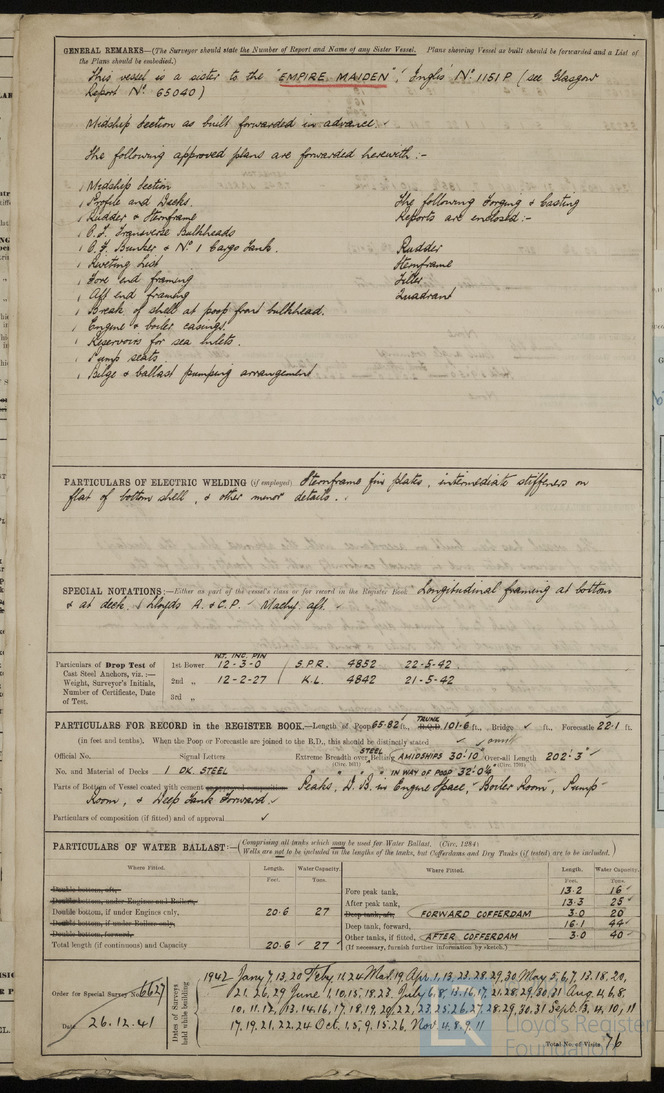 GENERAL REMARKS—(The Surveyor should state the Number of Report and Name of any Sister Vessel. Plans shewing Vessel as built should be forwarded and a List of
the Plans should be embodied.)
This vessel is a sister to the "EMPIRE MAIDEN", Inglis No 1151P (see Glasgow
Report No 65040)
Midship Section as built forwarded in advance.
The following approved plans are forwarded herewith:-
Midship Section
Profile and Decks.
The following Forging & Casting
Rudder & Sternframe
Reports are enclosed:-
O.T. Transverse Bulkheads
O.F. Bunker & No 1 Cargo Tank.
Rudder
Riveting List
Sternframe
Fore end framing
Tiller
Aft end framing
Quadrant
Break of shell at poop front bulkhead.
Engine & boiler casings.
Reservoirs for sea inlets.
Pump seats.
Bilge & ballast pumping arrangement
PARTICULARS OF ELECTRIC WELDING (if employed) Sternframe fin plates, intermediate stiffeners on
flat of bottom shell, & other minor details.
SPECIAL NOTATIONS:—Either as part of the vessel's class or for record in the Register Book Longitudinal framing at bottom
& at deck. Lloyds A. & C.P. Machy. aft.
WT. INC. PIN
Particulars of Drop Test of Cast Steel Anchors, viz.:— Weight, Surveyor's Initials, Number of Certificate, Date of Test.
1st Bower 12-3-0 S.P.R. 4852 22-5-42
2nd „ 12-2-27 K.L. 4842 21-5-42
3rd „
PARTICULARS FOR RECORD in the REGISTER BOOK.—Length of Poop 65.82 ft., TRUNK 101.6 ft., Bridge ft., Forecastle 22.1 ft.
(in feet and tenths). When the Poop or Forecastle are joined to the B.D., this should be distinctly stated
Official No. Signal Letters Extreme Breadth over STEEL Belting (Circ. 1611) AMIDSHIPS 30'.10" Over-all Length 202'.3"
No. and Material of Decks 1 DK. STEEL " " " " IN WAY OF POOP 32'.0¼"
Parts of Bottom of Vessel coated with cement Peaks, D.B. in Engine Space, Boiler Room, Pump
Room, & Deep Tank Forward
Particulars of composition (if fitted) and of approval
PARTICULARS OF WATER BALLAST:—(Comprising all tanks which may be used for Water Ballast. (Circ. 1284)
Wells are not to be included in the lengths of the tanks, but Cofferdams and Dry Tanks (if tested) are to be included.)
Where Fitted. Length. Water Capacity. Where Fitted. Length. Water Capacity.
Feet. Tons. Feet. Tons.
Double bottom, aft, Fore peak tank, 13.2 16
Double bottom, under Engines and Boilers, After peak tank, 13.3 25
Double bottom, if under Engines only, 20.6 27 Deep tank, aft, FORWARD COFFERDAM 3.0 20
Double bottom, if under Boilers only, Deep tank, forward, 16.1 44
Double bottom, forward, Other tanks, if fitted, AFTER COFFERDAM 3.0 40
Total length (if continuous) and Capacity 20.6 27 (If necessary, furnish further information by sketch.)
Order for Special Survey No. 6627
Date 26.12.41
Dates of Surveys held while building
1942 Jany 7, 13, 20 Feby 11, 24 Mar. 19 Apr. 1, 13, 23, 28, 29, 30 May 5, 6, 7, 13, 18, 20,
21, 26, 29 June 1, 10, 15, 18, 23 July 6, 8, 13, 16, 17, 21, 28, 29, 30, 31 Aug. 4, 6, 8,
10, 11, 12, 13, 14, 16, 17, 18, 19, 20, 22, 23, 25, 26, 27, 28, 29, 30, 31 Sept. 3, 4, 10, 11
17, 19, 21, 22, 24 Oct. 1, 5, 9, 15, 26 Nov. 4, 8, 9, 11
Total No. of Visits 76
Lloyd's Register
Foundation